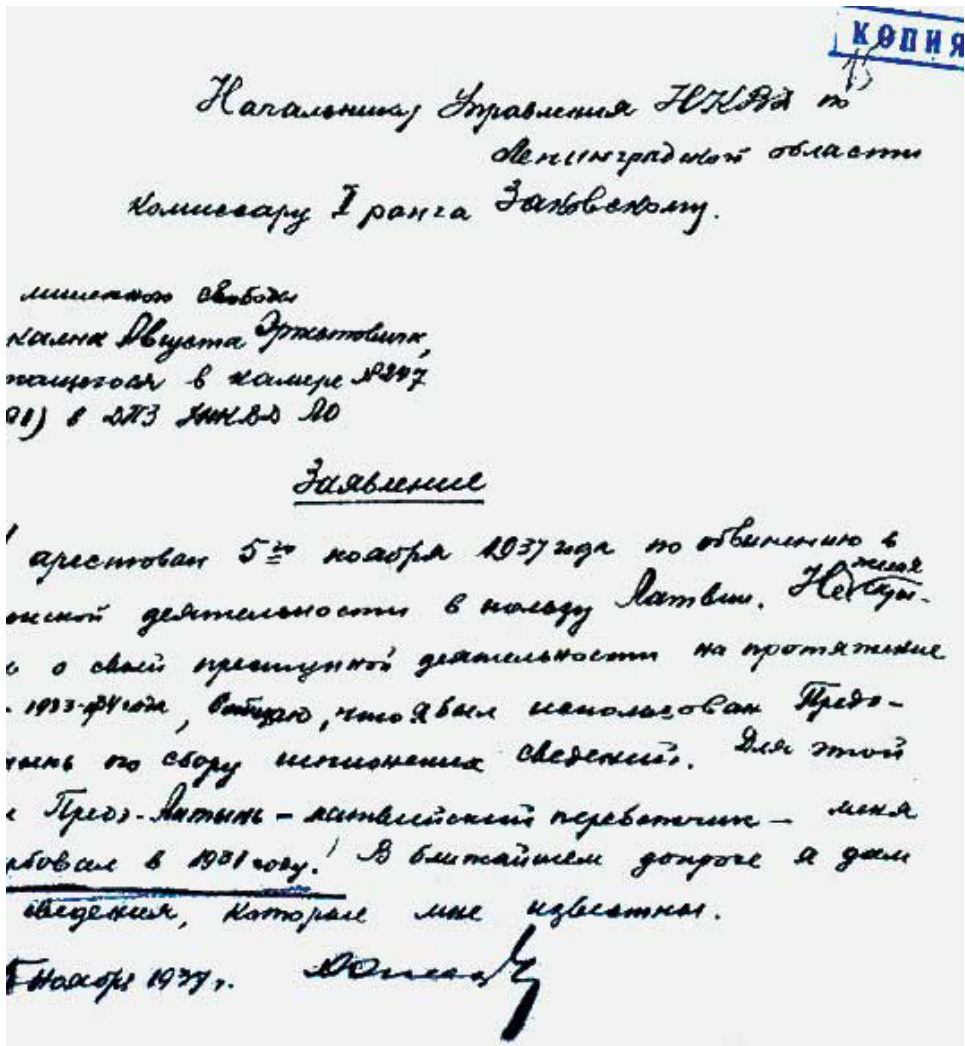 КОПИЯ
15
Начальнику Управления НКВД по
Ленинградской области
комиссару I ранга Заковскому.
лишенного свободы
кална Августа Эрнстовича,
жащегося в камере №247
) в ДПЗ НКВД ЛО
Заявление
арестован 5го ноября 1937 года по обвинению в
онской деятельности в пользу Латвии. Не желая
о своей преступной деятельности на протяжение
года, что я был использован Предэ-
тынь по сбору шпионских сведений. Для этой
и Предэ-Латынь – латвийский перебежчик – меня
рбовал в 1931 году. В ближайшем допросе я дам
сведения, которые мне известны.
ноября 1937 г.